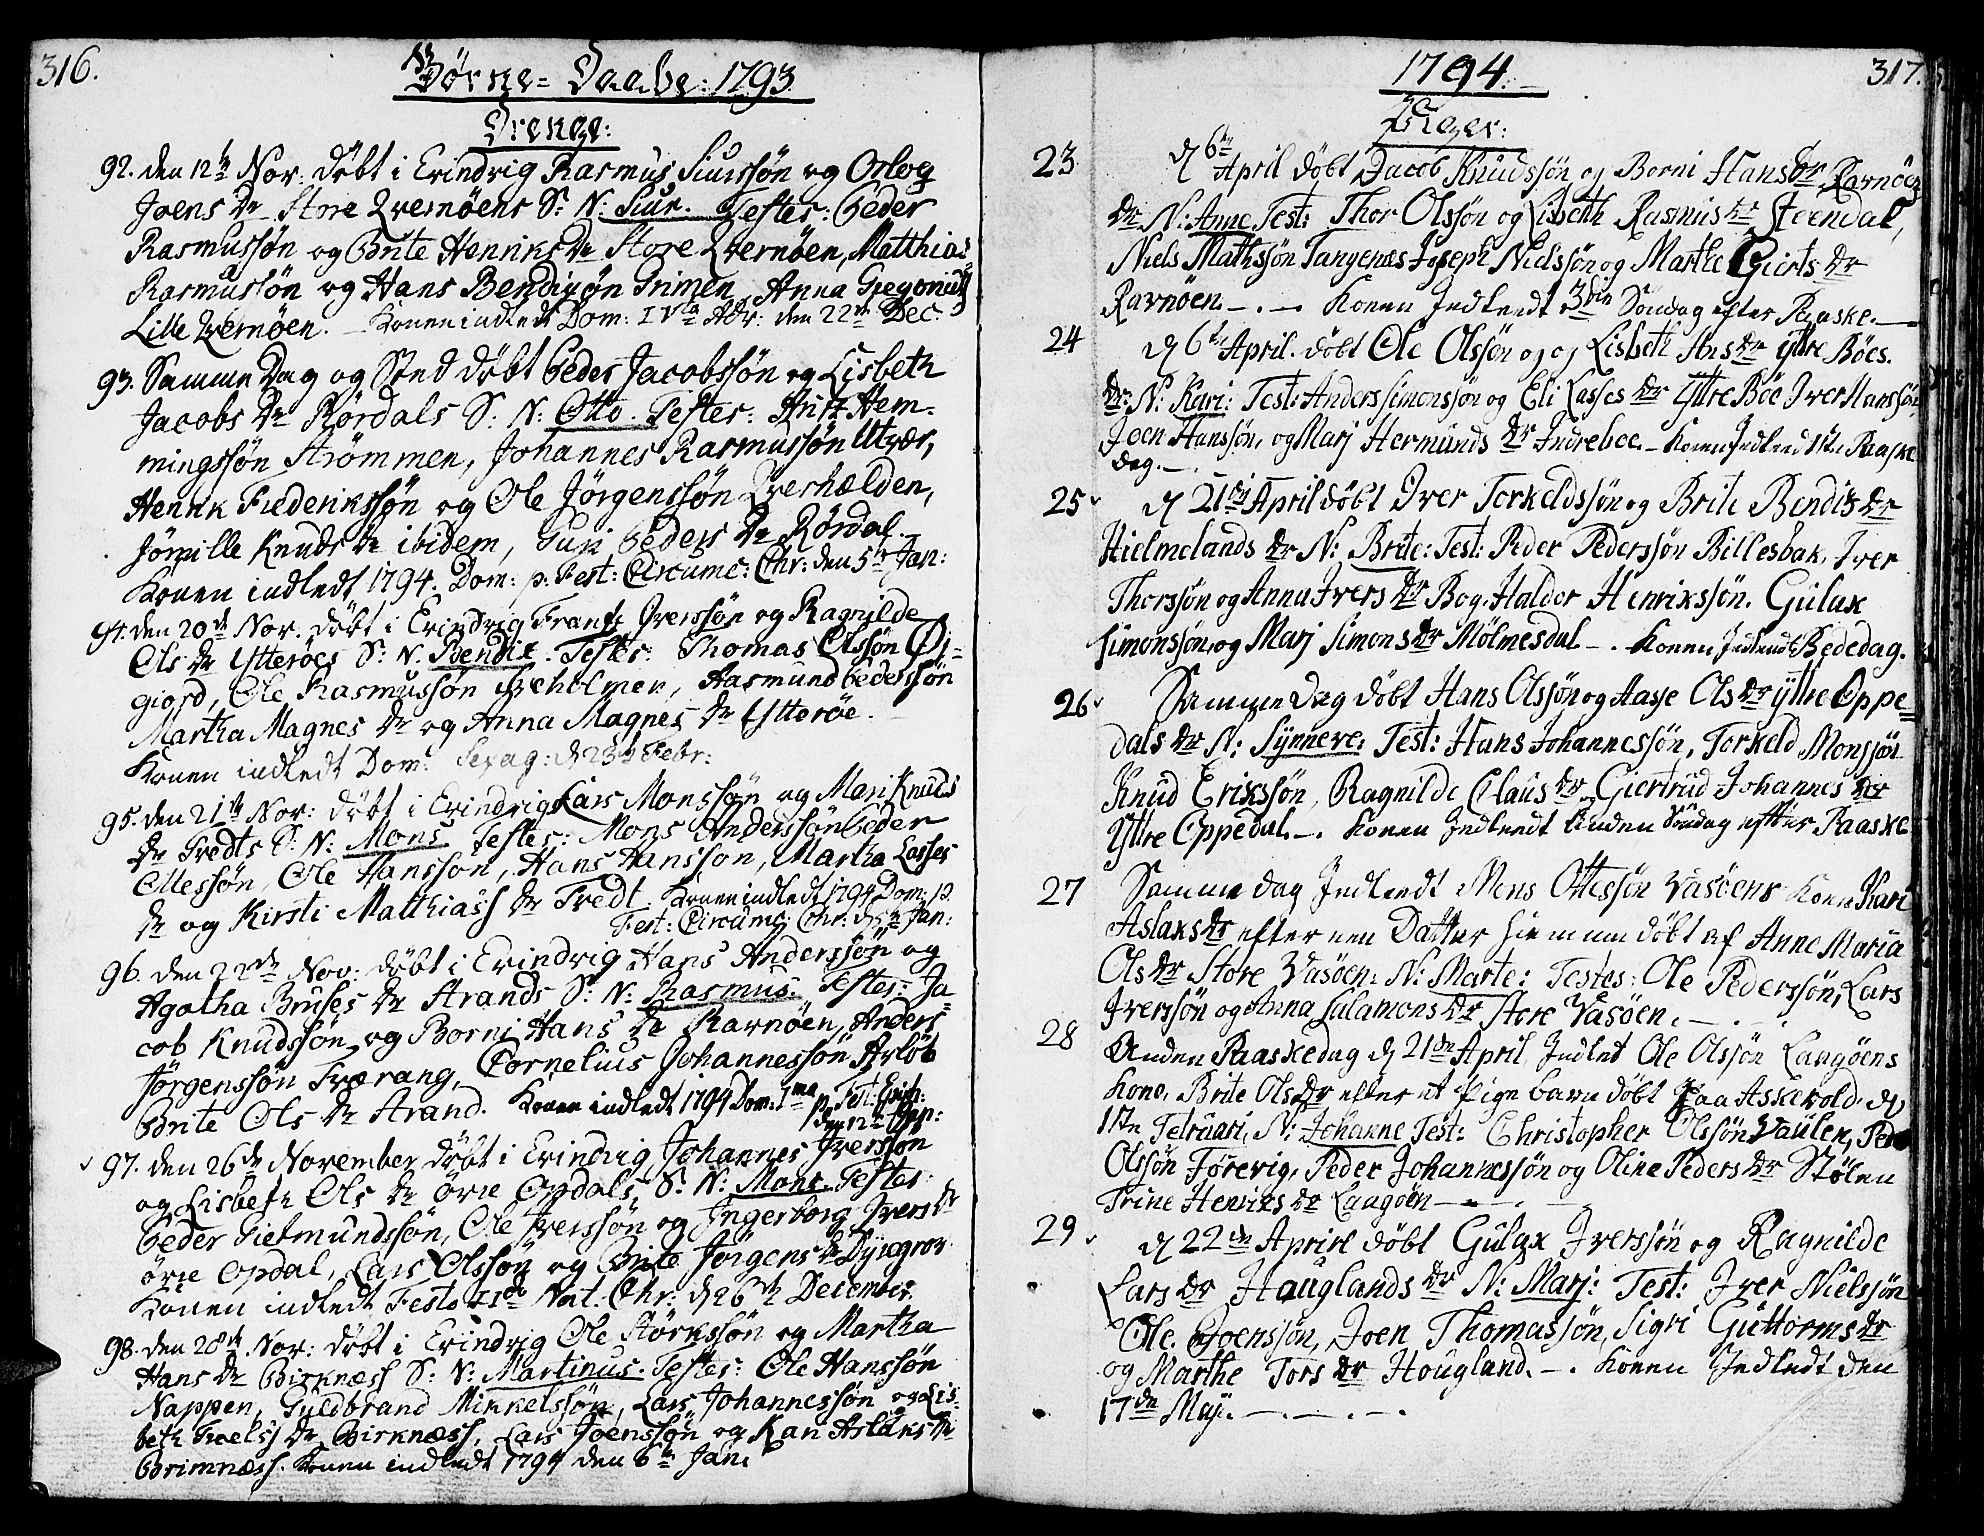 316.
Børne-Daabe: 1793.
Drenge:
92. den 12te Nov: døbt i Evindvig Rasmus Siurssøn og Orlog
Joens Dr Store Qvernøens S: N: Siur. Testes: Peder
Rasmussøn og Brite Henriks Dr Store Qvernøen, Matthias
Rasmussøn og Hans Bendixøn Grimen, Anna Gregorius
Lille Qvernøen. Konen indledt Dom: IVta Adv: den 22de Dec:
93. Samme Dag og Sted døbt Peder Jacobssøn og Lisbeth
Jacobs Dr Rørdals S: N: Otto. Testes: Ants Hem-
mingssøn Strømmen, Johannes Rasmussøn Utvær,
Henrik Frederikssøn og Ole Jørgenssøn Qverhælden,
Knuds Dr ibidem, Guri Peders Dr Rørdal.
Konen indledt 1794. Dom: p. Fest: Circumc: Chr: den 5te Jan:
94. den 20de Nov. døbt i Evindvig Frants Iverssøn og Ragnilde
Ols Dr Ytterøes S: N. Bendix. Testes: Thomas Olssøn Øi-
giord, Ole Rasmussøn Byeholmen, Aasmund Pederssøn
Martha Magnes Dr og Anna Magnes Dr Ytterøe.
Konen indledt Dom: Sexag: d 23de Febr:
95. den 21de Nov: døbt i Evindvig Lars Monssøn og Mari Knuds
Dr Tredts S: N: Mons. Testes: Mons Anderssøn Peder
Ottessøn, Ole Hanssøn, Hans Hanssøn, Martha Lasses
Dr og Kirsti Matthiass Dr Tredt. Konen indledt 1794 Dom: p.
Fest: Circumc: Chr: d 5te Jan:
96. den 22de Nov: døbt i Evindvig Hans Anderssøn og
Agatha Bruses Dr Strands S: N: Rasmus. Testes: Ja-
cob Knudssøn og Borni Hans Dr Ravnøen, Anders
Jørgenssøn Trævang, Cornelius Johannessøn Arløt
Brite Ols Dr Strand. Konen indledt 1794 Dom: 1ma p. Fest: Epiph:
den 12te Jan:
97. den 26de November døbt i Evindvig Johannes Iverssøn
og Lisbeth Ols Dr Øvre Opdals S: N: Mons. Testes:
Peder Gietmundssøn, Ole Iverssøn og Ingerborg Ivers Dr
Øvre Opdal, Lars Olssøn og Brite Jørgens Dr Dyngrov.
Konen indledt Festo IIdo Nat. Chr: d 26de December.
98. den 28de Nov: døbt i Evindvig Ole Størkssøn og Martha
Hans Dr Birknæss S: N: Martinus. Testes: Ole Hanssøn
Nappen, Guldbrand Mikkelssøn, Lars Johannessøn og Lis-
beth Troels Dr Birknæss, Lars Joenssøn og Kari Aslaks Dr
Brimnæss. Konen indledt 1794 den 6te Jan:
317.
1794.
Piger:
23 d 6te April døbt Jacob Knudssøn og Borni Hans Dr Ravnøens
Dr N: Anne Test: Thor Olssøn og Lisbeth Rasmus Dr Steendal,
Niels Mathssøn Tangenæs Joseph Nielssøn og Marthe Gierts Dr
Ravnøen. Konen Indledt 3die Søndag efter Paaske.
24 d 6te April. døbt Ole Olssøn og Lisbeth Ans Dr Yttre Böes.
Dr: N: Kari: Test: Anders Simonssøn og Eli Lasses Dr Yttre Böe Iver Hanssøn
Joen Hanssøn, og Marj Hermunds Dr Indreboe. Konen Indled 1ste Paaske
dag.
25 d 21de April døbt Iver Torkeldssøn og Brite Bendix Dr
Hielmelands Dr N: Brite: Test: Peder Pederssøn Billesbak, Iver
Thorssøn og Anna Ivers Dr Bog. Haldor Henrikssøn. Gulax
Simonssøn, og Marj Simons Dr Mölmesdal. Konen Indledt Bededag.
26 Samme Dag døbt Hans Olssøn og Aase Ols Dr Yttre Oppe-
dals Dr N: Synneve: Test: Hans Johannessøn, Torkeld Monssøn
Knud Erikssøn, Ragnilde Claus Dr Giertrud Johannes Dr
Yttre Oppedal. Konen Indledt Anden Søndag efter Paaske
27 Samme dag Indledt Mons Ottessøn Vasöens Kone Kari
Aslaks Dr efter een Datter hiemme døbt af Anne Maria
Ols Dr Store Vasöen: N: Marte: Testes: Ole Pederssøn, Lars
Iverssøn og Anna Salamons Dr Store Vasöen.
28 Anden Paaskedag d 21de April Indlet Ole Olssøn Laagöens
Kone, Brite Ols Dr efter et Pige barn døbt paa Askevold d
11te Februari, N: Johanne Test: Christopher Olssøn Vaulen, Peder
Olssøn Torevig, Peder Johannessøn og Oline Peders Dr Stølen
Trine Henriks Dr Laagöen
29 d 22de April døbt Gulax Iverssøn og Ragnilde
Lars Dr Hauglands Dr N: Marj: Test: Iver Nielssøn
Ole Joenssøn, Joen Thomassøn, Sigri Guttorms Dr
og Marthe Tors Dr Hougland. Konen Indledt den
17de Maj.